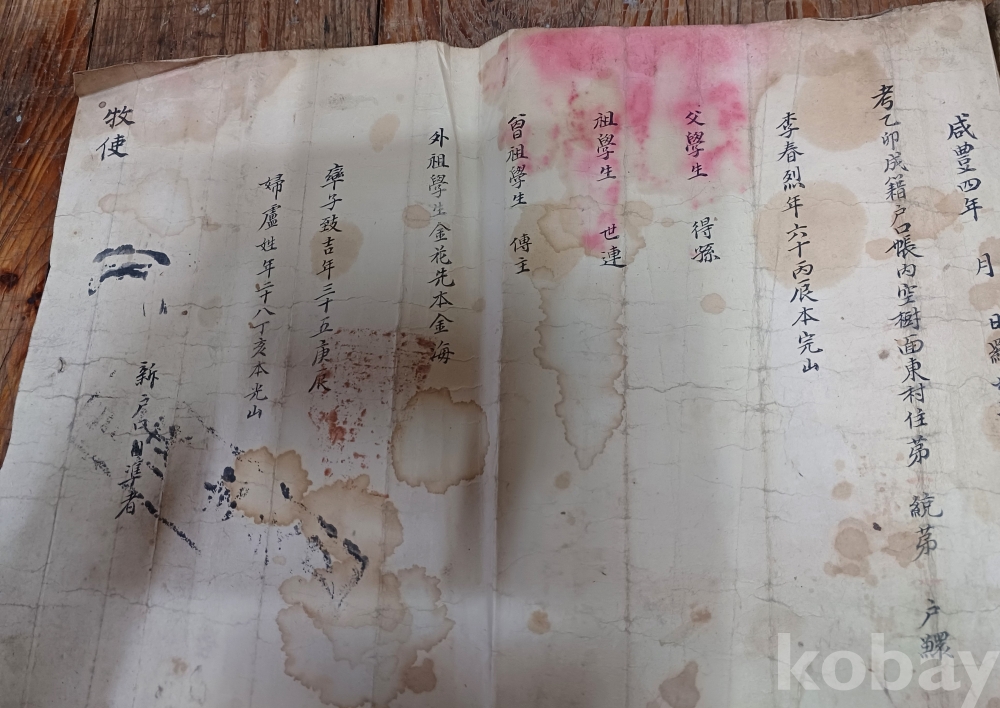 咸豊四年 月 日羅
考乙卯成籍戶口帳內空樹面東村住苐 統苐 戶鰥
李春烈年六十丙辰本完山
父學生 得孫
祖學生 世連
曾祖學生 傳主
外祖學生金花先本金海
率子致吉年三十五庚辰
婦盧姓年二十八丁亥本光山
新戶口準者
牧使
kobay